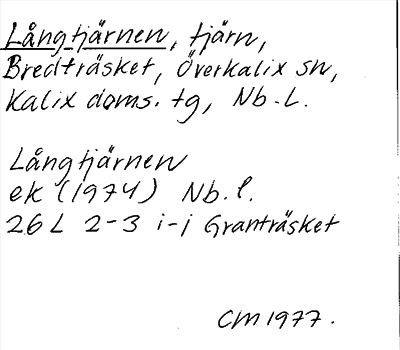 Långtjärnen, tjärn,
Bredträsket, Överkalix sn,
Kalix doms. tg, Nb. L.
Långtjärnen
ek (1974) Nb. l.
26 L 2-3 i-j Granträsket
CM 1977.